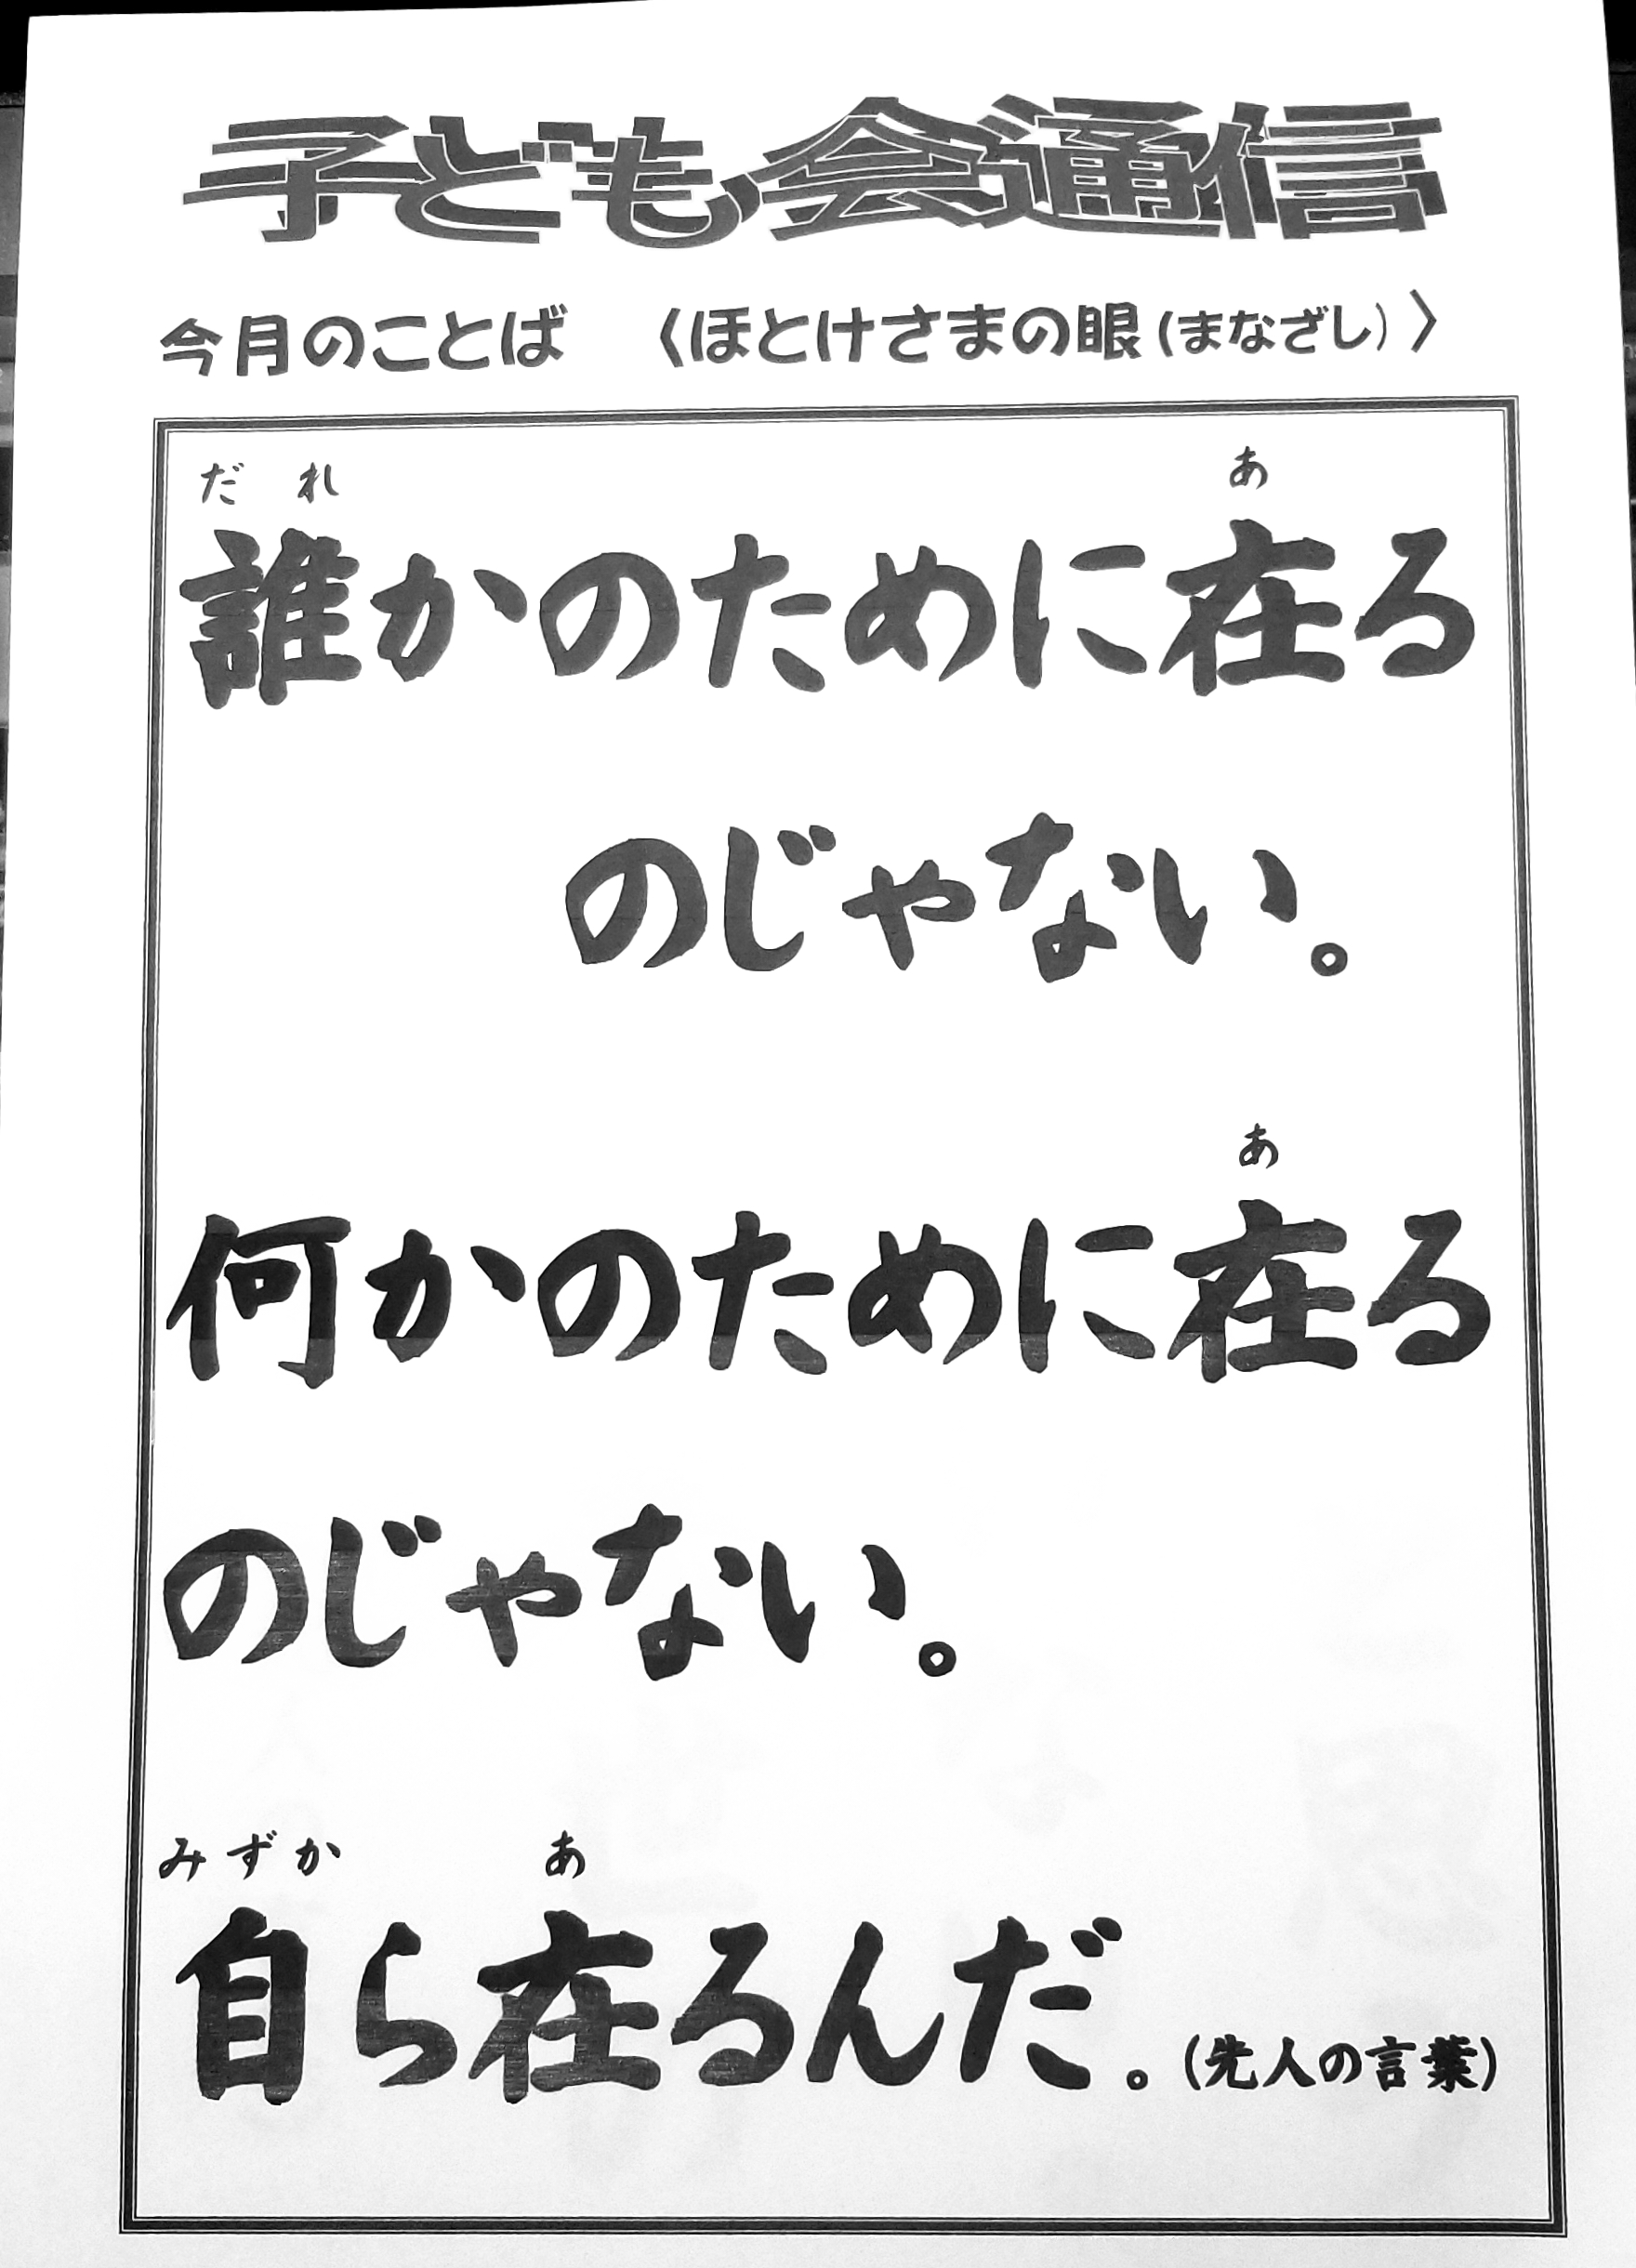 子ども会通信
今月のことば 〈ほとけさまの眼(まなざし)〉
だれ あ
誰かのために在る
のじゃない。
あ
何かのために在る
のじゃない。
みずか あ
自ら在るんだ。(先人の言葉)